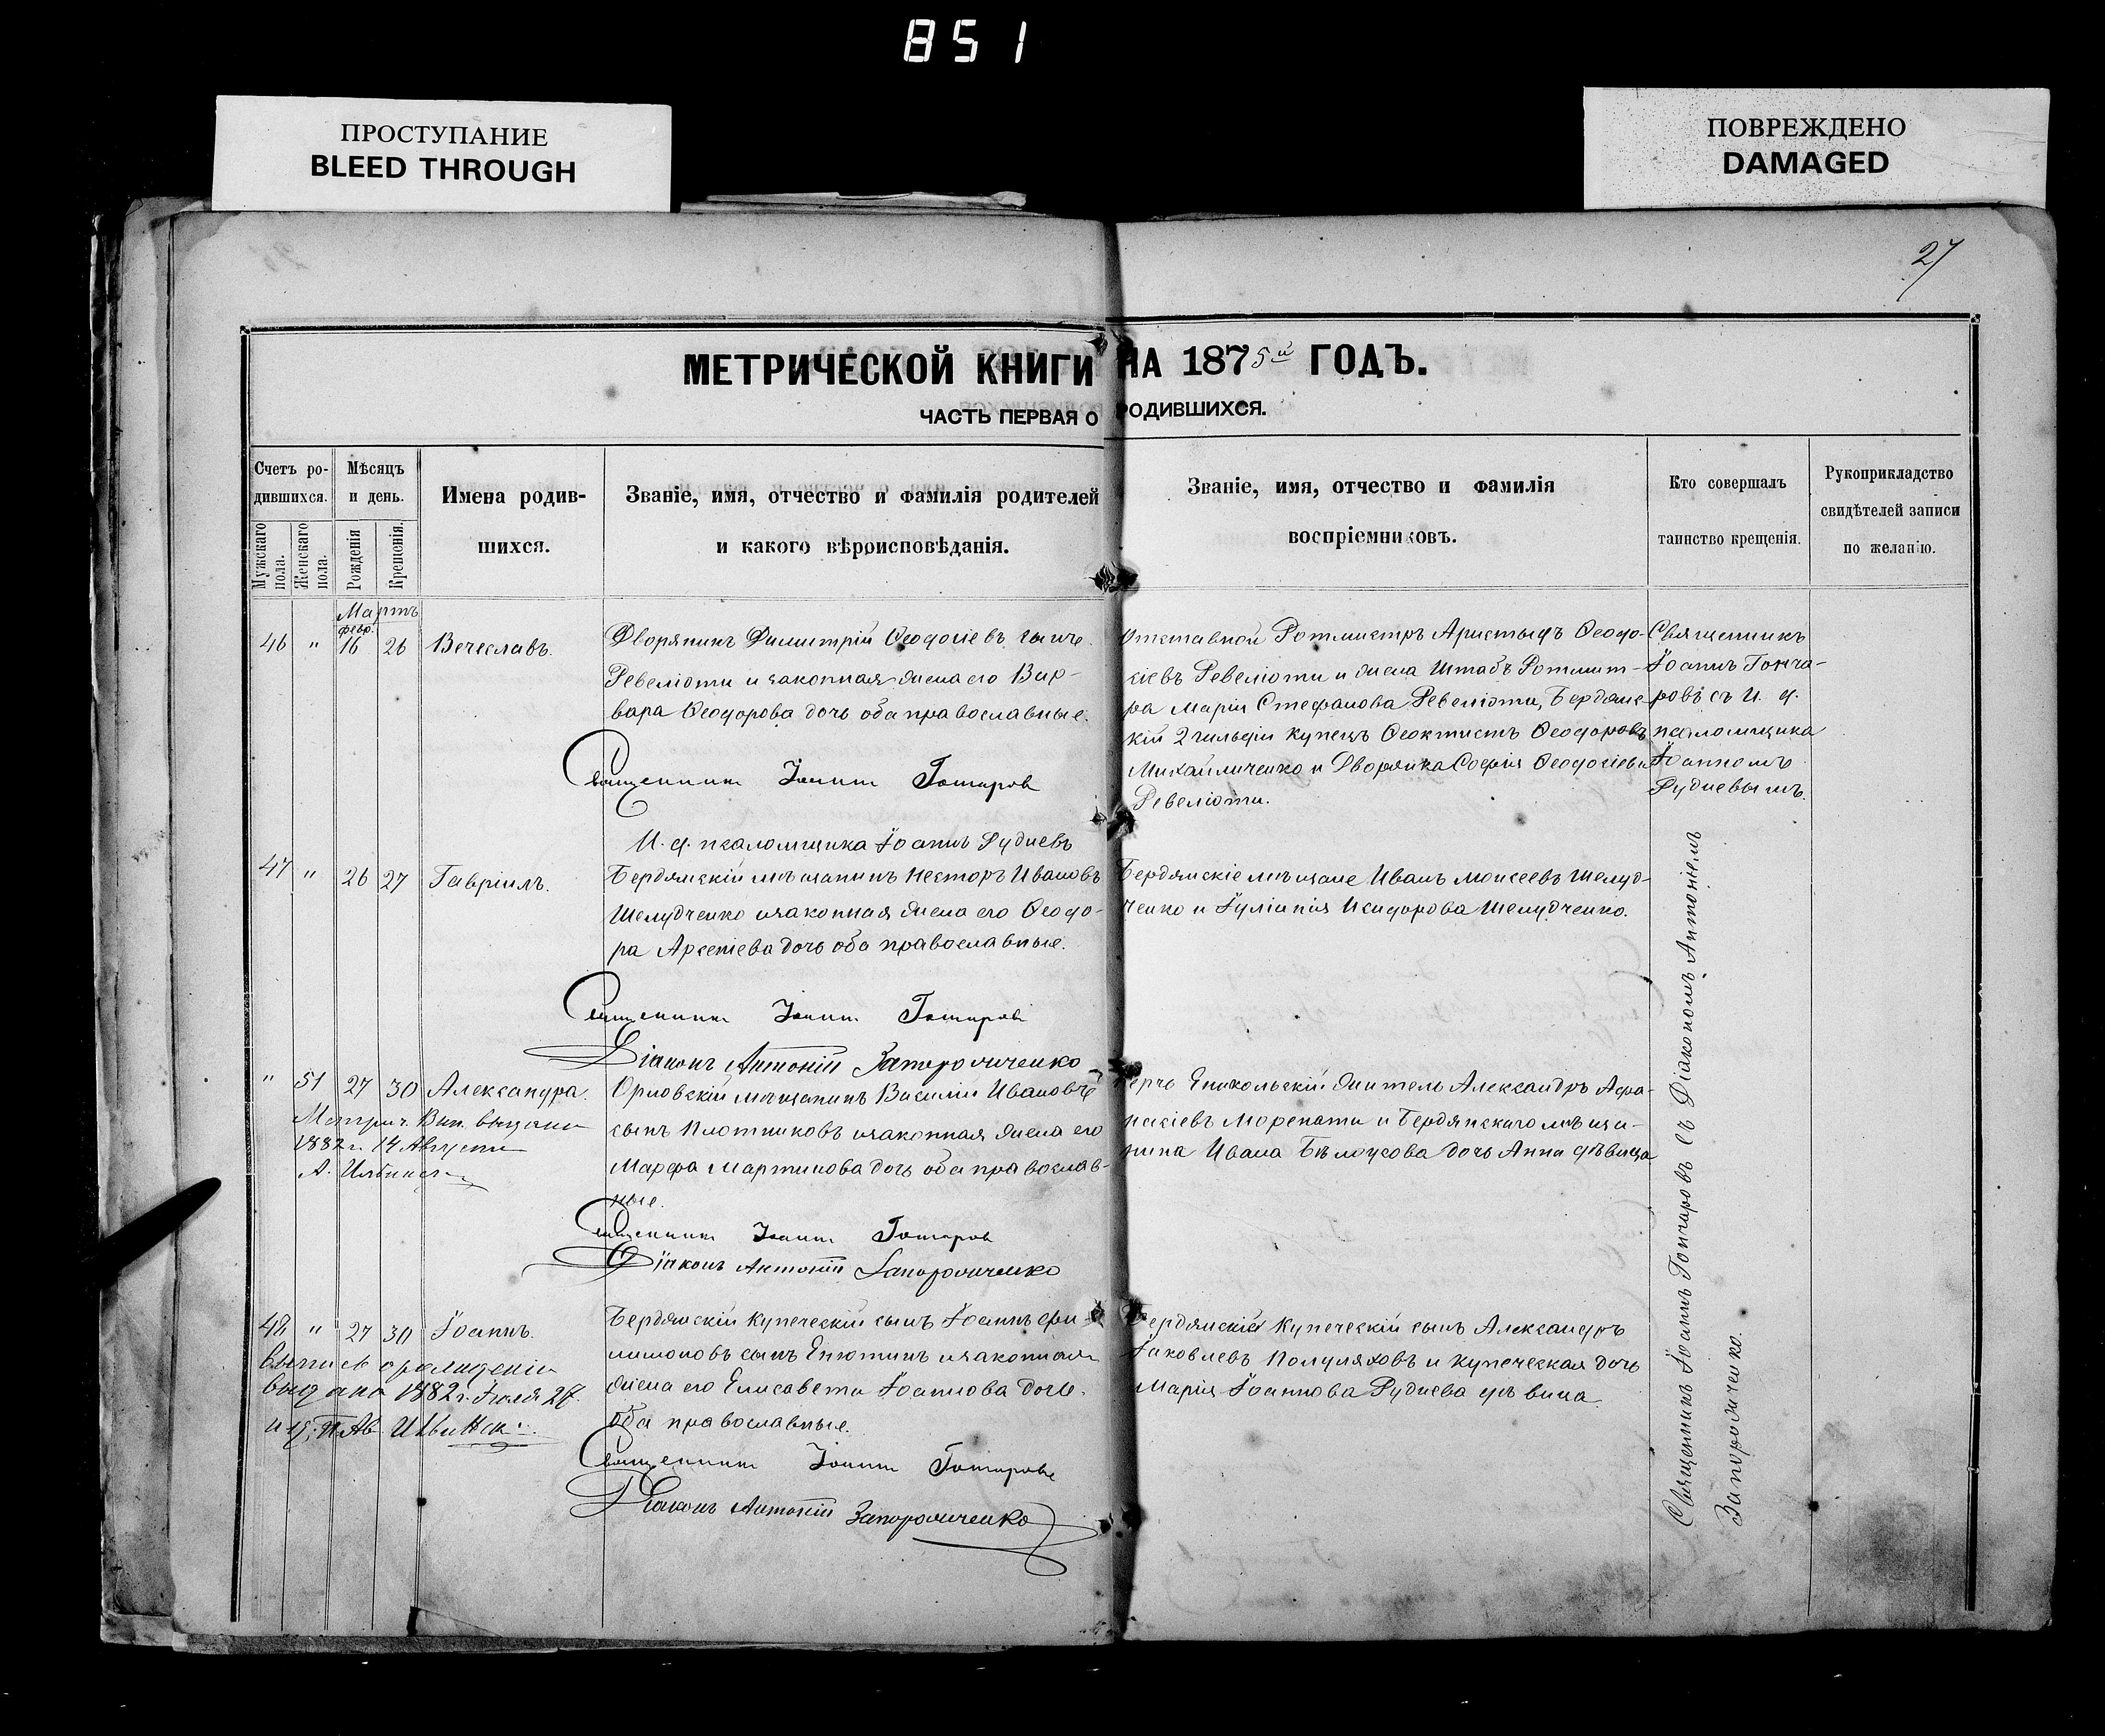 851
ПРОСТУПАНИЕ
BLEED THROUGH
ПОВРЕЖДЕНО
DAMAGED
27
МЕТРИЧЕСКОЙ КНИГИ НА 1875й ГОДЪ.
ЧАСТЬ ПЕРВАЯ О РОДИВШИХСЯ.
Счетъ ро-
дившихся.
Мужскаго
пола.
Женскаго
пола.
Мѣсяцъ
и день.
Рожденія
Крещенія.
Имена родив-
шихся.
Званіе, имя, отчество и фамилія родителей
и какого вѣроисповѣданія.
Званіе, имя, отчество и фамилія
воспріемниковъ.
Кто совершалъ
таинство крещенія.
Рукоприкладство
свидѣтелей записи
по желанію.
Мартъ
февр.
46 " 16 26 Вечеславъ.
Дворянинъ Димитрій Ѳеодосіевъ сынъ
Ревеліоти и законная жена его Вар-
вара Ѳеодорова дочь оба православные.
Священникъ Іоаннъ Гончаровъ
И. д. псаломщика Іоаннъ Рудневъ
Отставной Ротмистръ Аристидъ Ѳеодо-
сіевъ Ревеліоти и жена Штабъ Ротмист-
ра Марія Стефанова Ревеліоти, Бердянс-
кій 2 гильдіи купецъ Ѳеоктистъ Ѳеодоровъ
Михайличенко и Дворянка Софія Ѳеодосіевна
Ревеліоти.
Священникъ
Іоаннъ Гонча-
ровъ съ И. д.
псаломщика
Іоанномъ
Рудневымъ.
47 " 26 27 Гавріилъ.
Бердянскій мѣщанинъ Несторъ Ивановъ
Шелудченко и законная жена его Ѳеодо-
ра Арсеніева дочь оба православные.
Священникъ Іоаннъ Гончаровъ
Діаконъ Антоній Запорожченко
Бердянскіе мѣщане Иванъ Моисеевъ Шелуд-
ченко и Іуліанія Исидорова Шелудченко.
" 51 27 30 Александра.
Метрич. Вып. выдана
1882 г. 14 Августа
Орловскій мѣщанинъ Василій Ивановъ
сынъ Плотниковъ и законная жена его
Марфа Мартинова дочь оба православ-
ные.
Священникъ Іоаннъ Гончаровъ
Діаконъ Антоній Запорожченко
Керчь Еникольскій житель Александръ Афа-
насіевъ Морепати и Бердянскаго мѣща-
нина Ивана Бѣлоусова дочь Анна дѣвица
48 " 27 30 Іоаннъ.
выпись о рожденіи
выдана 1882 г. Іюля 27.
Бердянскій купеческій сынъ Іоаннъ Фи-
лимоновъ сынъ Енютинъ и законная
жена его Елисавета Іоаннова дочь.
оба православные.
Священникъ Іоаннъ Гончаровъ
Діаконъ Антоній Запорожченко
Бердянскій купеческій сынъ Александръ
Іаковлевъ Полуляховъ и купеческая дочь
Марія Іоаннова Руднева дѣвица.
Священникъ Іоаннъ Гончаровъ съ Діакономъ Антоніемъ
Запорожченко.